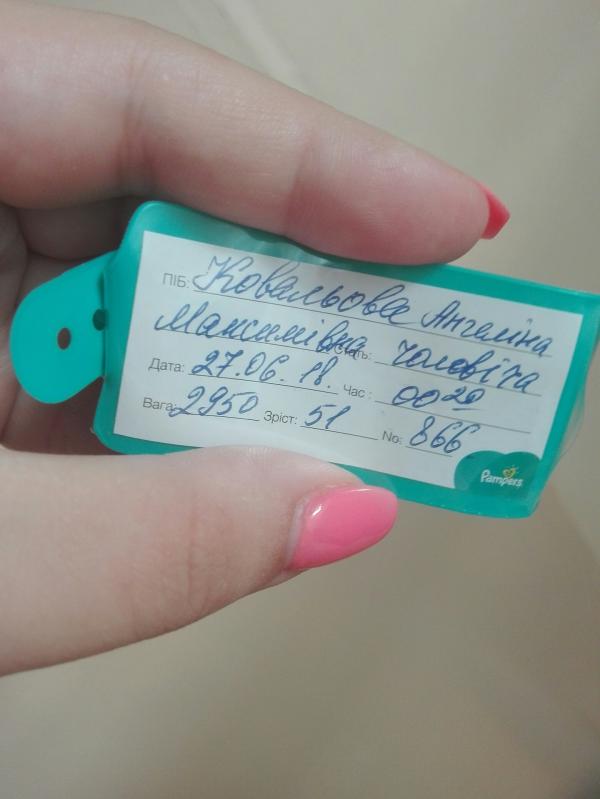 ПІБ: Ковальова Ангеліна
Максимівна Стать: чоловіча
Дата: 27.06.18. Час: 00 20
Вага: 2950 Зріст: 51 No: 866
Pampers